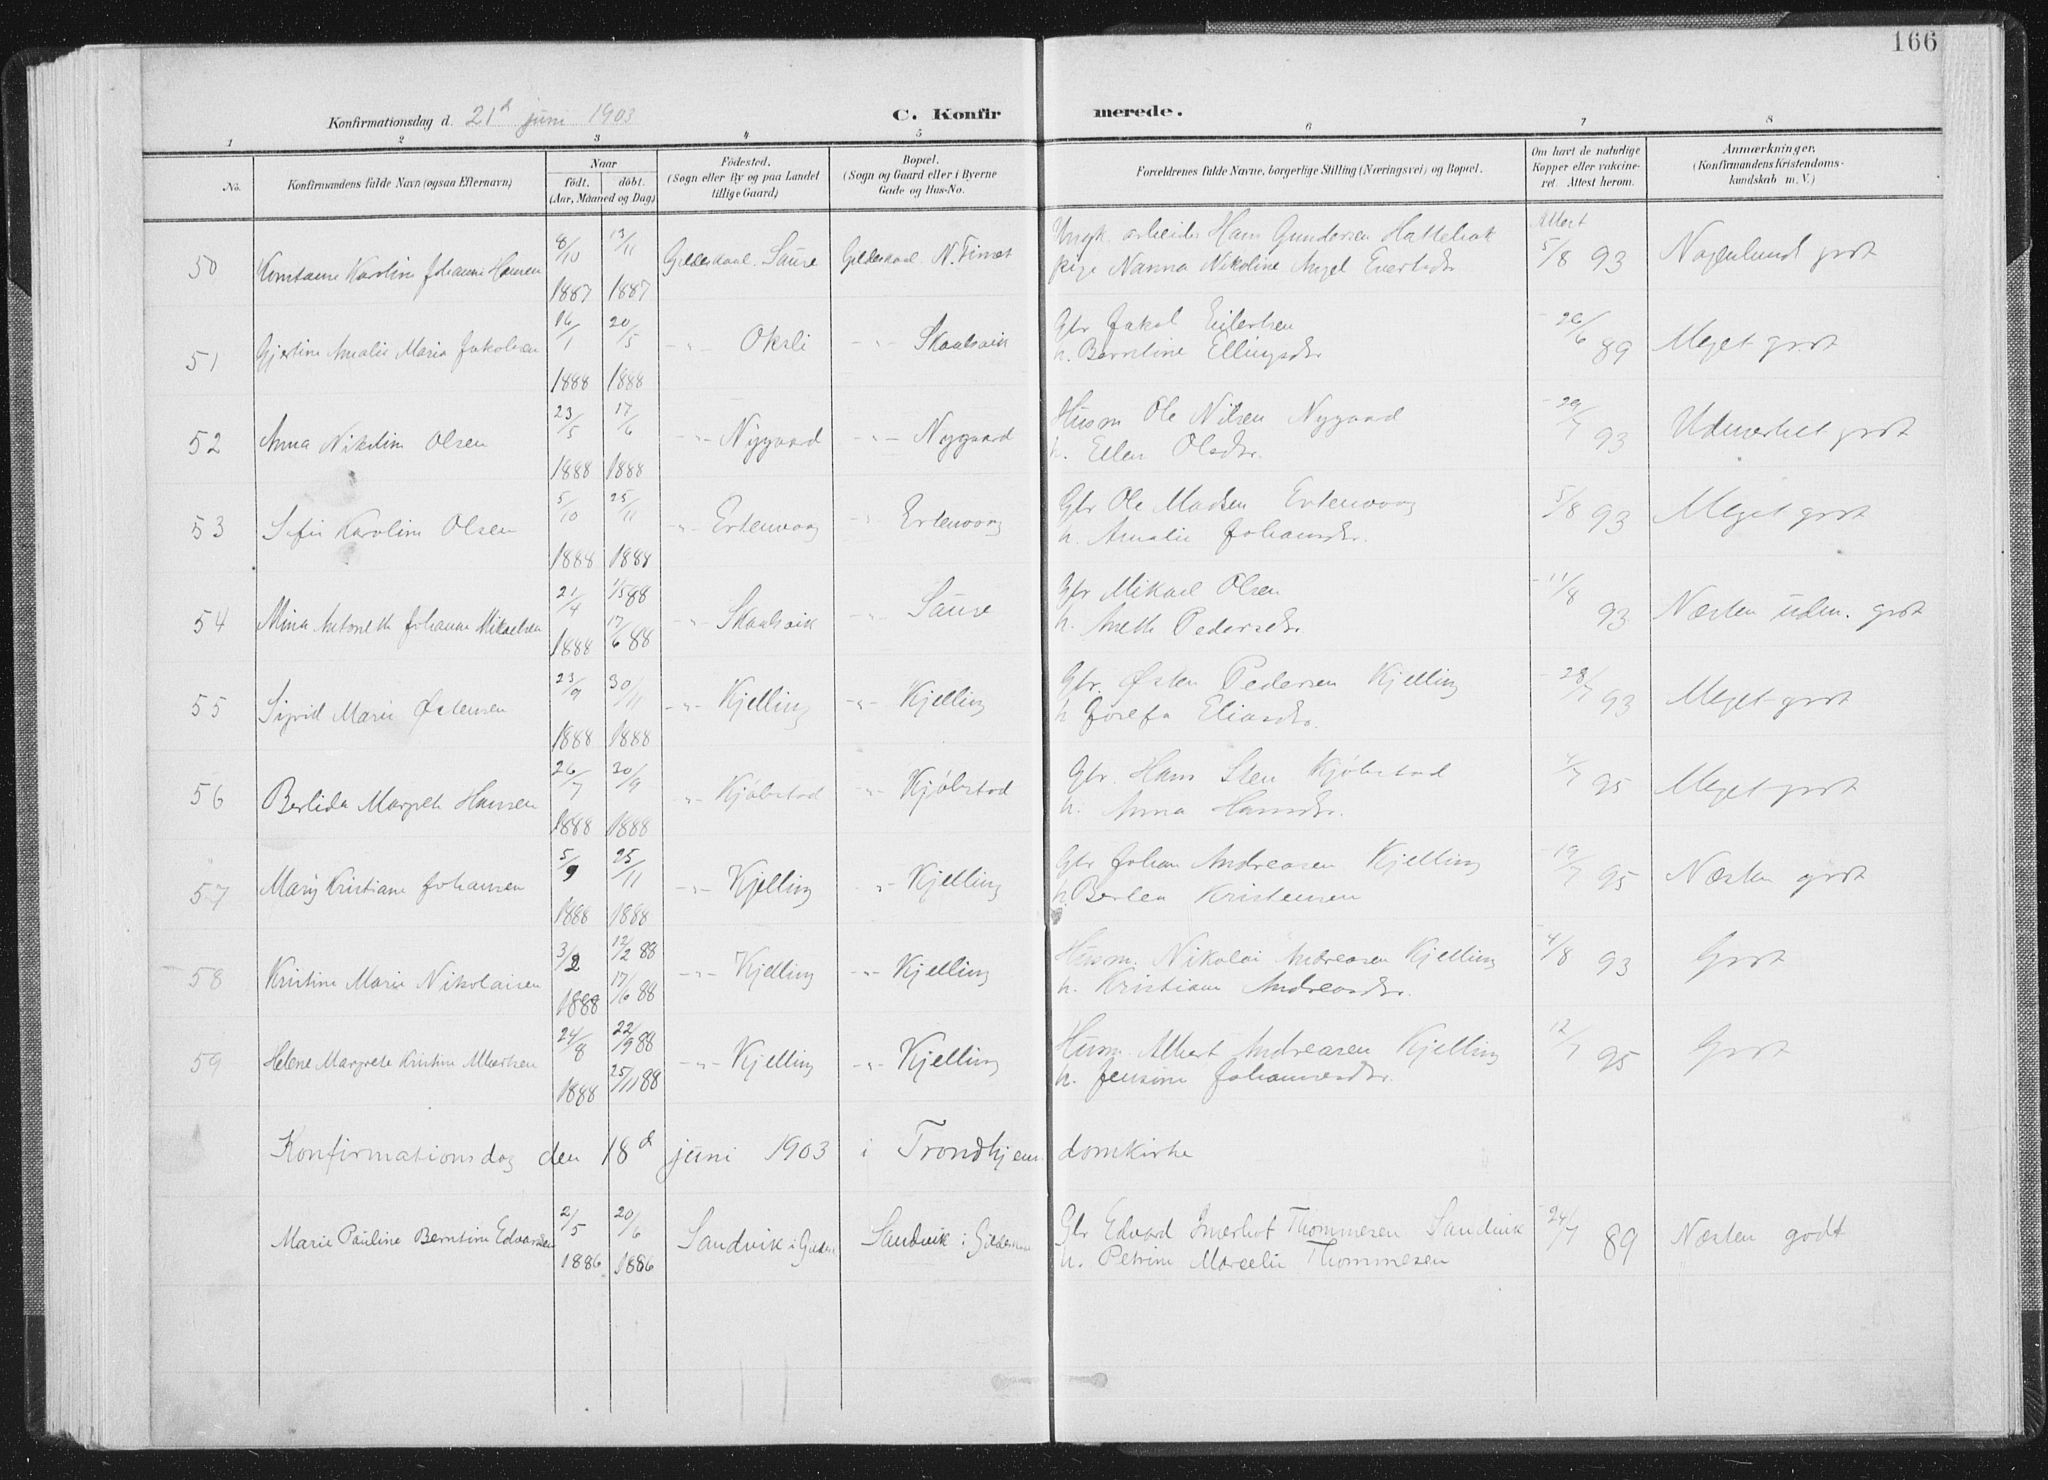 166
Konfirmationsdag d. 21d juni 1903 C. Konfirmerede.
1 2 3 4 5 6 7 8
No. Konfirmandens fulde Navn (ogsaa Efternavn) Naar født. døbt. (Aar, Maaned og Dag) Fødested. (Sogn eller By og paa Landet tillige Gaard) Bopæl. (Sogn og Gaard eller i Byerne Gade og Hus-No. Forældrenes fulde Navne, borgerlige Stilling (Næringsvei) og Bopæl. Om havt de naturlige Kopper eller vakcineret. Attest herom. Anmærkninger. (Konfirmandens Kristendomskundskab m. V.)
50 Karoline Johanne Hansen 8/10 1887 13/11 1887 Gildeskaal Saure Gildeskaal N. Finset Ungk. arbeider Hans Gundersen Hattebak
pige Nanna Nikoline Angel Evertsdr Attest 5/8 93 Nogenlund godt
51 Gjertine Amalie Maria Jakobsen 16/1 1888 20/5 1888 -"- Oksli -"- Skaalsvik Gbr Jakob Eilertsen
h. Berntine Ellingsdr - 26/6 89 Meget godt
52 Anna Nikoline Olsen 23/5 1888 17/6 1888 -"- Nygaard -"- Nygaard Husm Ole Nilsen Nygaard
h. Ellen Olsdr. - 29/7 93 Udmerket godt
53 Sofie Karoline Olsen 5/10 1888 25/11 1888 -"- Ertenvaag -"- Ertenvaag Gbr Ole Madsen Ertenvaag
h. Amalie Johansdr. - 5/8 93 Meget godt
54 Mina Antoneth Johanne Mikaelsen 21/4 1888 1/5 88 17/6 88 -"- Skaalsvik -"- Saure Gbr Mikael Olsen
h. Aneth Pedersdr. - 11/8 93 Næsten udm. godt
55 Sigrid Marie Østensen 23/9 1888 30/11 1888 -"- Kjelling -"- Kjelling Gbr. Østen Pedersen Kjelling
h. Josefa Eliasdr. - 28/7 93 Meget godt
56 Berlida Margrete Hansen 26/7 1888 30/9 1888 -"- Kjøbstad -"- Kjøbstad Gbr. Hans Sten Kjøbstad
h. Anna Hansdr. 4/7 95 Meget godt
57 Mary Kristiane Johansen 5/9 1888 25/11 1888 -"- Kjelling -"- Kjelling Gbr Johan Andreasen Kjelling
h. Berlea Kristensen - 19/7 95 Næsten godt
58 Kristine Marie Nikolaisen 3/2 1888 12/2 88 17/6 88 -"- Kjelling -"- Kjelling Husm. Nikolai Andreasen Kjelling
h. Kristiane Andreasdr. 4/8 93 Godt
59 Helene Margrete Kristine Albertsen 24/8 1888 22/9 88 25/11 88 -"- Kjelling -"- Kjelling Husm. Albert Andreasen Kjelling
h. Jensine Johannesdr. 12/7 95 Godt
Konfirmationsdag den 18d juni 1903 i Trondhjems domkirke
Marie Pauline Berntine Edvardsen 2/5 1886 20/6 1886 Sandvik i Gildesk Sandvik i Gildeskaal Gbr Edvard Thommesen Sandvik
h. Petrine Marcelie Thommesen - 24/7 89 Næsten godt